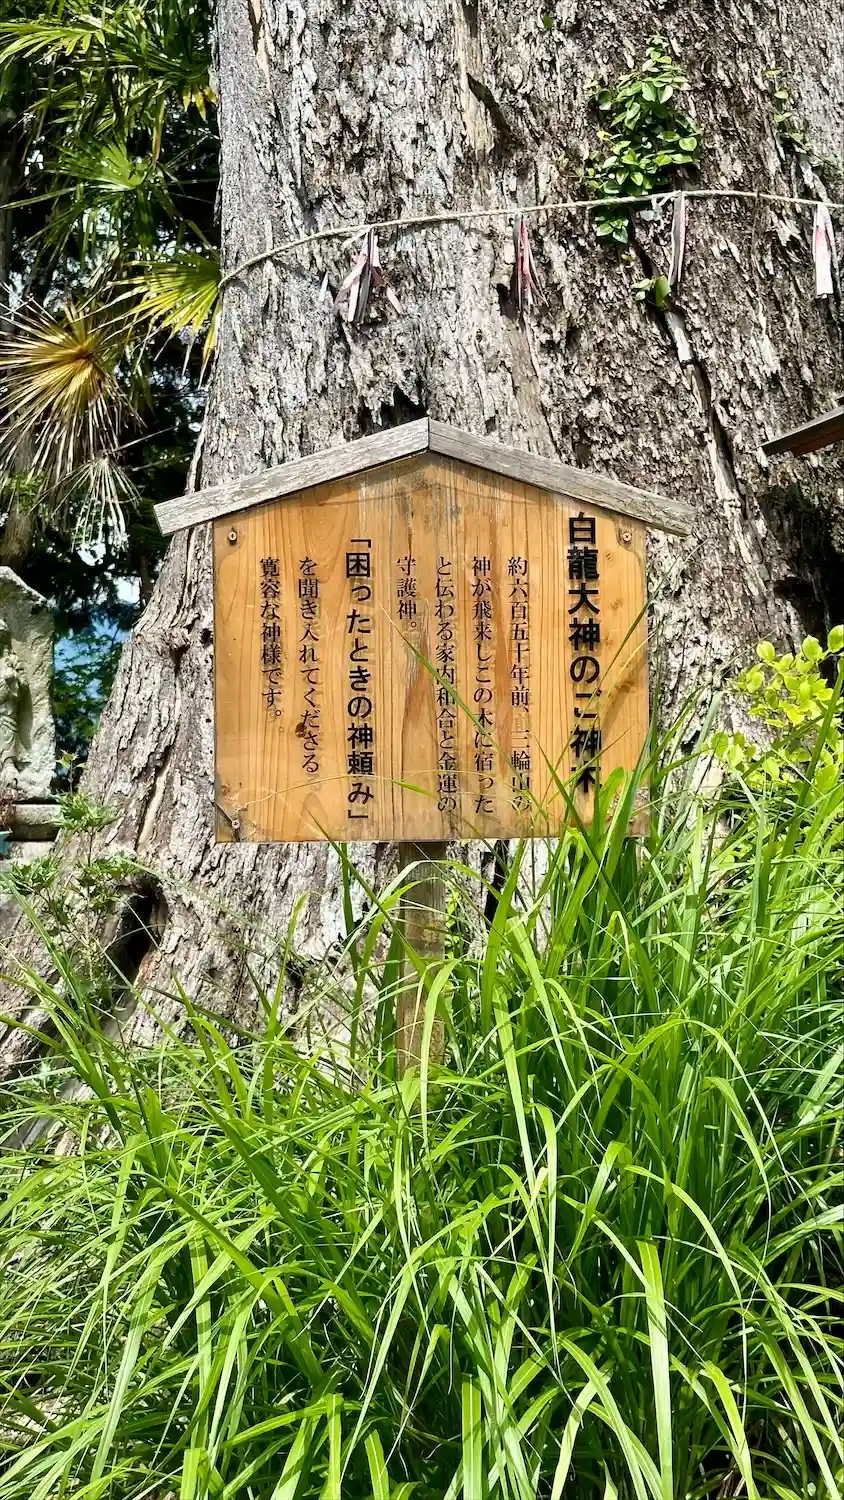 白龍大神のご神木
約六百五十年前、三輪山の
神が飛来しこの木に宿った
と伝わる家内和合と金運の
守護神。
「困ったときの神頼み」
を聞き入れてくださる
寛容な神様です。